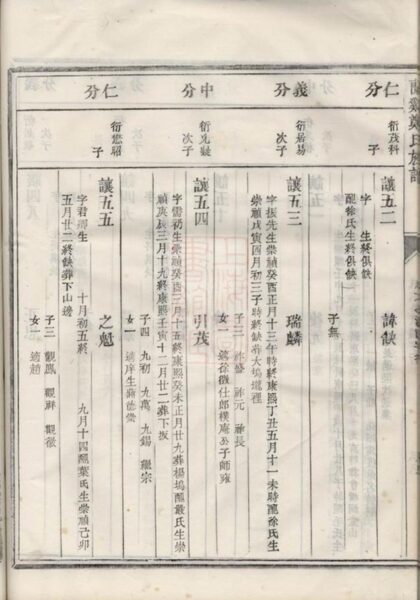 仁分
衍茂科
子
讓五二
諱缺
字 生終俱缺
配徐氏生終俱缺
子無
義分
中
衍居易
次子
讓五三
瑞麟
字振先生崇禎癸酉正月十三午時終康熙丁丑五月十一未時配徐氏生
崇禎戊寅四月初三子時終缺葬大塢壠裡
子三 祚盛 祚元 祚長
女一 適徐徵仕郎樸庵公子師雍
中分
衍九疑
次子
讓五四
引茂
字雷初生崇禎癸酉三月十五終康熙癸未正月廿九葬楊塢配嚴氏生崇
禎庚辰三月十九終康熙壬寅十二月廿二葬下坂
子四 九初 九萬 九錫 繼宗
女一 適庠生蔣德崇
仁分
衍懋昭
子
讓五五
之魁
字君卿生 十月初五終 九月十四配葉氏生崇禎己卯
五月廿二終缺葬下山邊
子三 觀鳳 觀祥 觀徵
女一 適趙